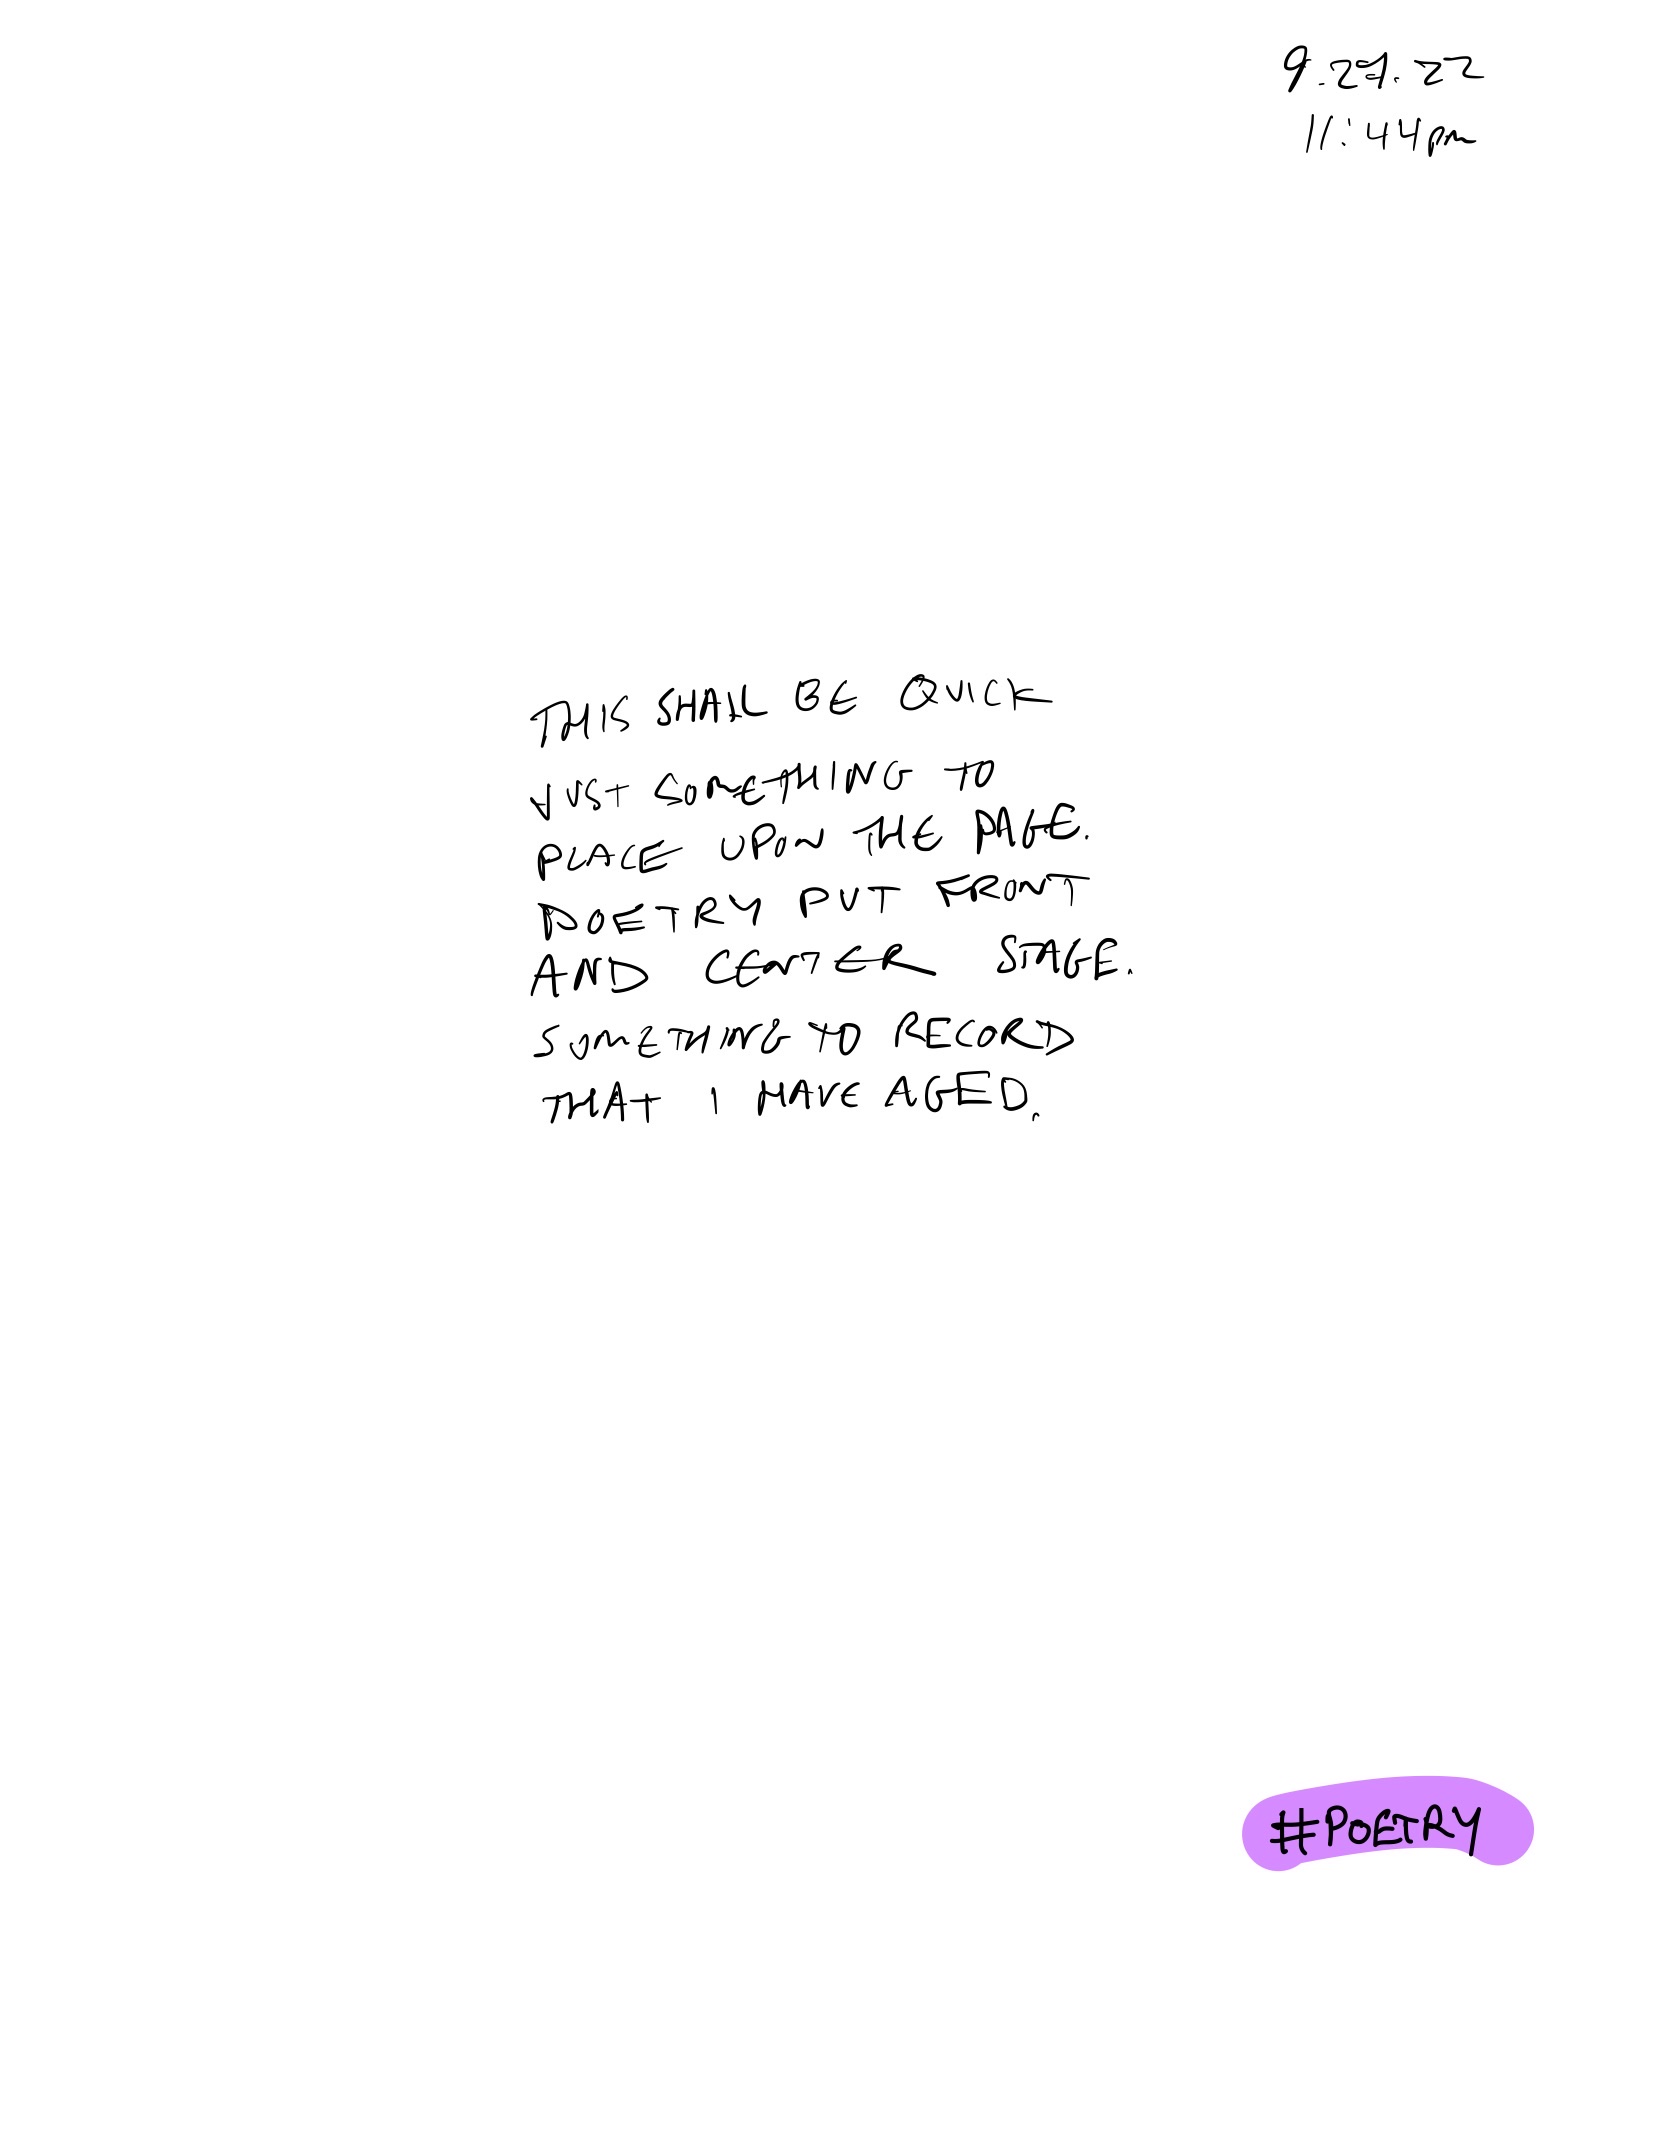 9.27.22
11:44pm
THIS SHALL BE QUICK
JUST SOMETHING TO
PLACE UPON THE PAGE.
POETRY PUT FRONT
AND CENTER STAGE.
SOMETHING TO RECORD
THAT I HAVE AGED.
#POETRY